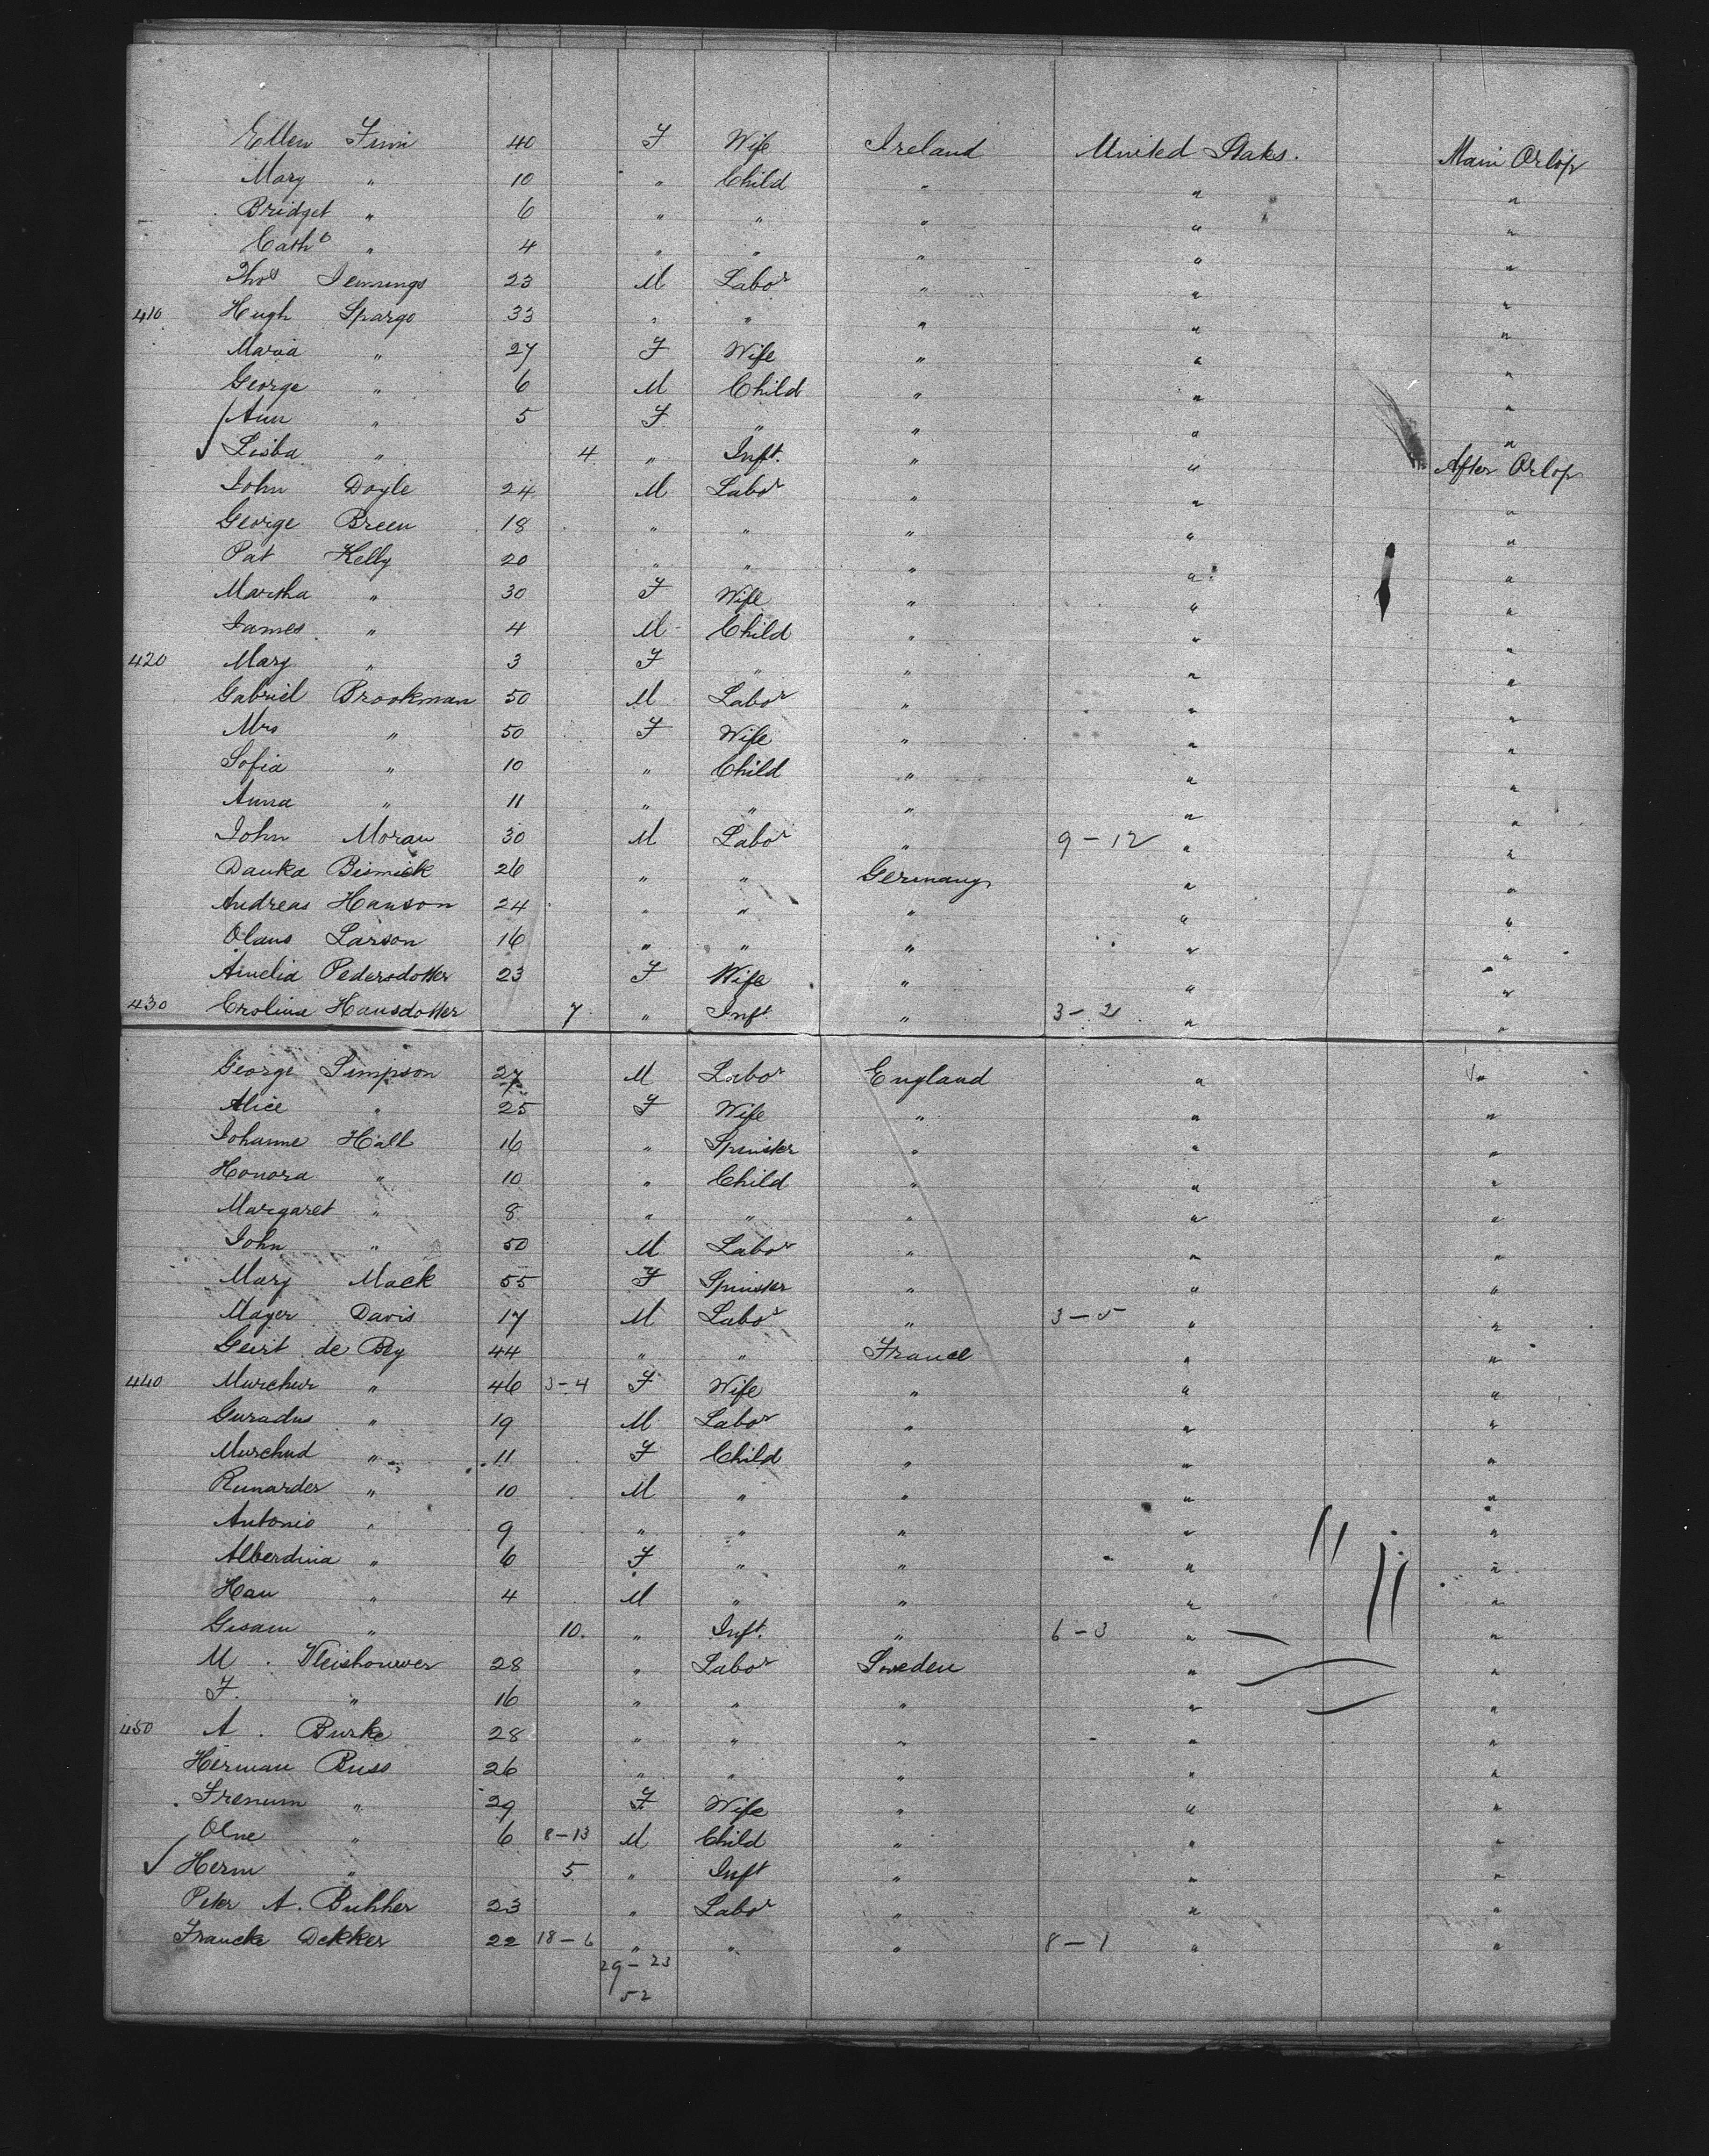 Ellen Finn 40 F Wife Ireland United States. Main Orlop
Mary " 10 " Child " " "
Bridget " 6 " " " " "
Cath^e " 4 " " " " "
Tho^s Jennings 23 M Labo^r " " "
410 Hugh Spargo 33 " " " " "
Maria " 27 F Wife " " "
George " 6 M Child " " "
Ann " 5 F " " " "
Lisba " 4 " Inft. " " After Orlop
John Doyle 24 M Labo^r " " "
George Breen 18 " " " " "
Pat Kelly 20 " " " " "
Martha " 30 F Wife " " "
James " 4 M Child " " "
420 Mary " 3 F " " " "
Gabriel Brookman 50 M Labo^r " " "
Mrs " 50 F Wife " " "
Sofia " 10 " Child " " "
Anna " 11 " " " " "
John Moran 30 M Labo^r " 9-12 " "
Danka Bismick 26 " " Germany " "
Andreas Hanson 24 " " " " "
Olaus Larson 16 " " " " "
Amelia Pedersdotter 23 F Wife " " "
430 Crolina Hansdotter 7 " Inft " 3-2 " "
George Simpson 27 M Labo^r England " "
Alice " 25 F Wife " " "
Johanne Hall 16 " Spinster " " "
Honora " 10 " Child " " "
Margaret " 8 " " " " "
John " 50 M Labo^r " " "
Mary Mack 55 F Spinster " " "
Mayer Davis 17 M Labo^r " 3-5 " "
Geirt de Bey 44 " " France " "
440 Murchur " 46 3-4 F Wife " " "
Guradus " 19 M Labo^r " " "
Murchud " 11 F Child " " "
Runarder " 10 M " " " "
Antonio " 9 " " " " "
Alberdina " 6 F " " " "
Han " 4 M " " " "
Gisam " 10. " Inft. " 6-3 " "
M. Vleishouwer 28 " Labo^r Sweden " "
F. " 16 " " " " "
450 A. Burke 28 " " " " "
Herman Buss 26 " " " " "
Frenum " 29 F Wife " " "
Olne " 6 8-13 M Child " " "
Herm " 5 " Inft " " "
Peter A. Buhher 23 " Labo^r " " "
Francke Dekker 22 18-6 " " " 8-1 " "
29-23
52